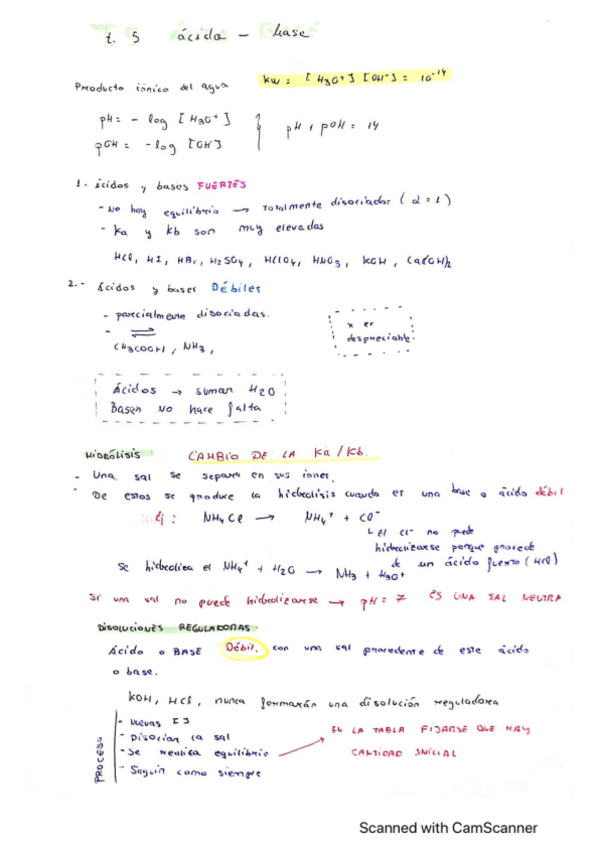 t. 5 ácido - base
Producto iónico del agua
Kw = [H3O+][OH-] = 10^-14
pH = - log [H3O+]
pOH = - log [OH-]
pH + pOH = 14
1.- Ácidos y bases FUERTES
- No hay equilibrio → totalmente disociador (α = 1)
- Ka y Kb son muy elevadas
HCl, HI, HBr, H2SO4, HClO4, HNO3, KOH, Ca(OH)2
2.- Ácidos y bases Débiles
- parcialmente disociadas.
- ⇌
CH3COOH, NH3,
x es
despreciable.
Ácidos → sumar H2O
Bases NO hace falta
HIDRÓLISIS CAMBIO DE LA Ka/Kb.
- Una sal se separa en sus iones.
- De estos se produce la hidrólisis cuando es una base o ácido débil
Ej: NH4Cl → NH4+ + Cl-
↳ El Cl- no puede
hidrolizarse porque procede
de un ácido fuerte (HCl)
Se hidroliza el NH4+ + H2O → NH3 + H3O+
Si una sal no puede hidrolizarse → pH = 7 ES UNA SAL NEUTRA
DISOLUCIONES REGULADORAS.
Ácido o BASE Débil, con una sal procedente de este ácido
o base.
KOH, HCl, nunca formarán una disolución reguladora
PROCESO
- Nuevas [ ]
- Disocian la sal
- Se realiza equilibrio
- Seguir como siempre
EN LA TABLA FIJARSE QUE HAY
CANTIDAD INICIAL
Scanned with CamScanner